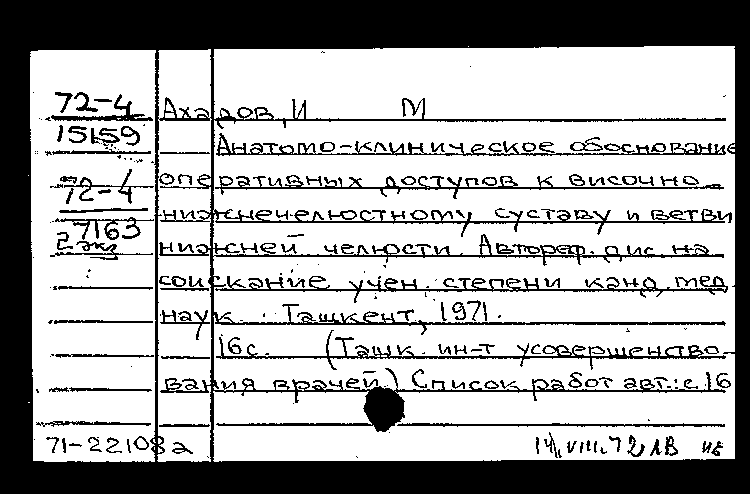 72-4 Ахадов, И М
15159 Анатомо-клиническое обоснование
72-4 оперативных доступов к височно-
7163 нижнечелюстному суставу и ветви
2 экз нижней челюсти. Автореф. дис. на
соискание учен. степени канд. мед.
наук. Ташкент, 1971.
16 с. (Ташк. ин-т усовершенство-
вания врачей) Список работ авт.: с. 16
71-22108а 14/VIII.72 ЛВ